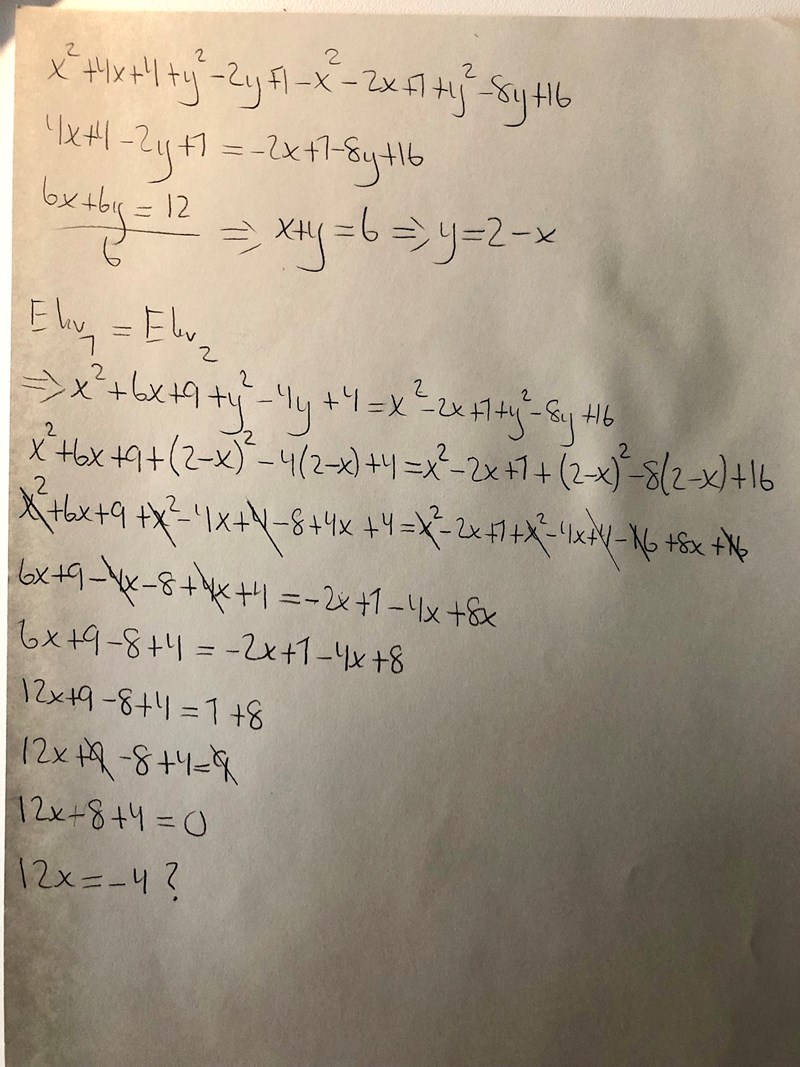 x²+4x+4+y²-2y+1-x²-2x+1+y²-8y+16
4x+4-2y+1=-2x+1-8y+16
6x+6y=12
6
⇒ x+y=6 ⇒ y=2-x
Ekv₁ = Ekv₂
⇒ x²+6x+9+y²-4y+4=x²-2x+1+y²-8y+16
x²+6x+9+(2-x)²-4(2-x)+4=x²-2x+1+(2-x)²-8(2-x)+16
x²+6x+9+x²-4x+4-8+4x+4=x²-2x+1+x²-4x+4-16+8x+16
6x+9-4x-8+4x+4=-2x+1-4x+8x
6x+9-8+4=-2x+1-4x+8
12x+9-8+4=1+8
12x+9-8+4=9
12x+8+4=0
12x=-4?